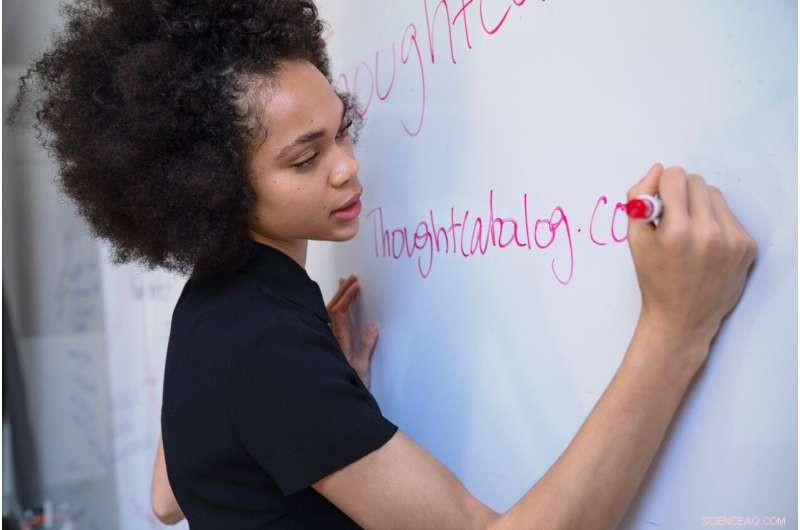 ThoughtCatalog.co
SCIENCEAQ.COM